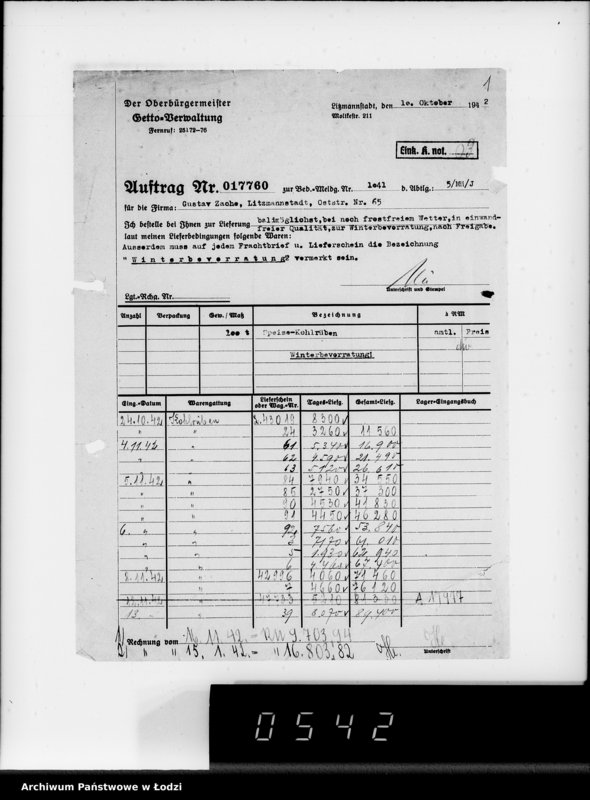 1
Der Oberbürgermeister
Getto-Verwaltung
Fernruf: 25172-76
Litzmannstadt, den 1o. Oktober 1942
Moltkestr. 211
Eink. K. not.
Auftrag Nr. 017760 zur Bed.-Meldg. Nr. 1o41 d. Abtlg.:
für die Firma: Gustav Zache, Litzmannstadt, Oststr. Nr. 65
Ich bestelle bei Ihnen zur Lieferung baldmöglichst, bei noch frostfreiem Wetter, in einwand-
freier Qualität, zur Winterbevorratung, nach Freigabe.
laut meinen Lieferbedingungen folgende Waren:
Ausserdem muss auf jeden Frachtbrief u. Lieferschein die Bezeichnung
" Winterbevorratung" vermerkt sein.
Unterschrift und Stempel
Lgl.-Rchg. Nr.
Anzahl Verpackung Gew. / Maß Bezeichnung à RM
1oo t Speise-Kohlrüben amtl. Preis
Winterbevorratung!
Eing.-Datum Warengattung Lieferschein oder Wag.-Nr. Tages-Liefg. Gesamt-Liefg. Lager-Eingangsbuch
24.10.42 Kohlrüben 43019 8300
" 24 3260 11 560
4.11.42 " 61 5340 16.900
" 62 4590 21.490
" 63 5120 26 610
5.11.42 " 84 7940 34 550
" " 85 2750 37 300
" " 90 4530 41 830
" " 91 4450 46 280
6. " " 7560 53.840
" " 3 7170 61.010
" " 5 1.930 62.940
" " 6 67 400
8.11.42 " 42996 4060 71 460
" 4660 76 120
12.11.42 " A 17977
13. " 39 8.070 89.400
1) Rechnung vom 16.11.42. = RM 9.703,94
2) " " 15. 1. 42. = " 16.803,82
Unterschrift
0542
Archiwum Państwowe w Łodzi